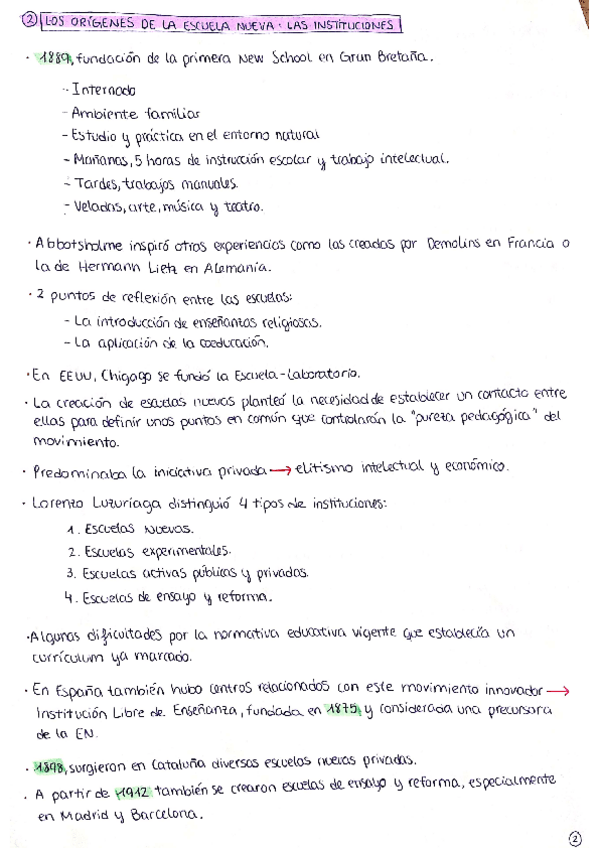 ② LOS ORÍGENES DE LA ESCUELA NUEVA: LAS INSTITUCIONES
· 1889, fundación de la primera New School en Gran Bretaña.
- Internado
- Ambiente familiar
- Estudio y práctica en el entorno natural
- Mañanas, 5 horas de instrucción escolar y trabajo intelectual.
- Tardes, trabajos manuales.
- Veladas, arte, música y teatro.
· Abbotsholme inspiró otras experiencias como las creadas por Demolins en Francia o
la de Hermann Lietz en Alemania.
· 2 puntos de reflexión entre las escuelas:
- La introducción de enseñanzas religiosas.
- La aplicación de la coeducación.
· En EEUU, Chigago se fundó la Escuela-Laboratorio.
· La creación de escuelas nuevas planteó la necesidad de establecer un contacto entre
ellas para definir unos puntos en común que controlarán la "pureza pedagógica" del
movimiento.
· Predominaba la iniciativa privada → elitismo intelectual y económico.
· Lorenzo Luzuriaga distinguió 4 tipos de instituciones:
1. Escuelas Nuevas.
2. Escuelas experimentales.
3. Escuelas activas públicas y privadas.
4. Escuelas de ensayo y reforma.
· Algunas dificultades por la normativa educativa vigente que establecía un
currículum ya marcado.
· En España también hubo centros relacionados con este movimiento innovador →
Institución Libre de Enseñanza, fundada en 1875 y considerada una precursora
de la EN.
· 1898, surgieron en Cataluña diversas escuelas nuevas privadas.
· A partir de 1912 también se crearon escuelas de ensayo y reforma, especialmente
en Madrid y Barcelona.
②